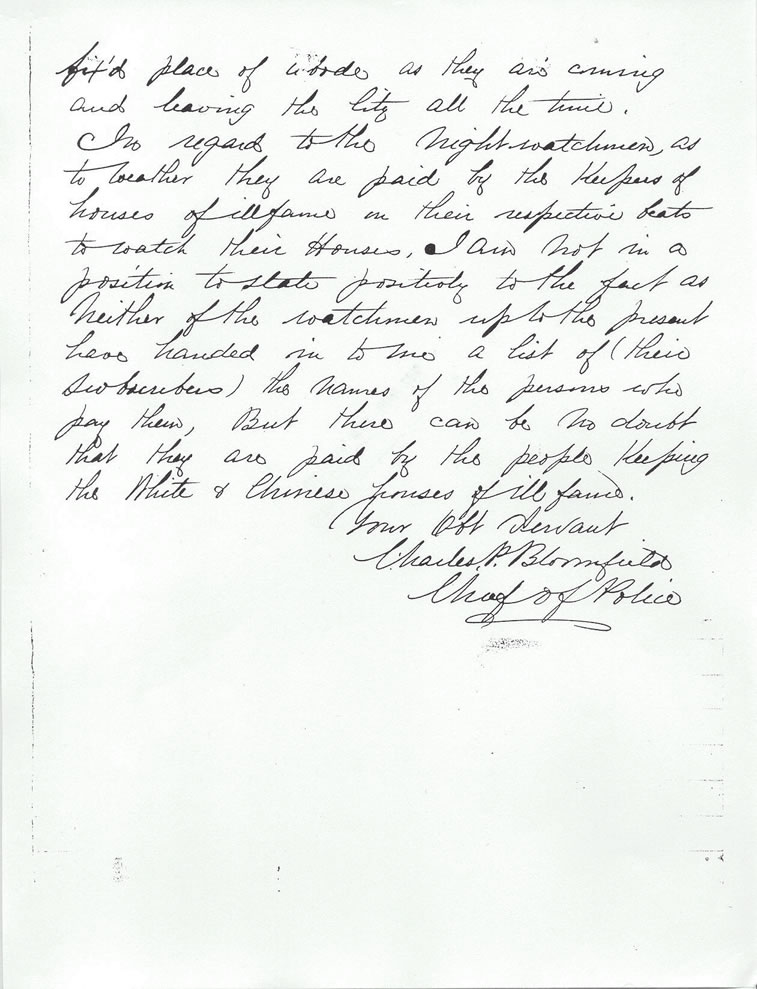 fix'd place of abode as they are coming
and leaving the City all the time.
In regard to the Nightwatchmen, as
to weather they are paid by the Keepers of
houses of ill fame in their respective beats
to watch their Houses, I am not in a
position to state positivly to the fact as
Neither of the watchmen up to the present
have handed in to me a list of (their
Subscribers) the names of the persons who
pay them, But there can be no doubt
that they are paid by the people Keeping
the White & Chinese houses of ill fame.
Your Obt Servant
Charles P. Bloomfield
Chief of Police